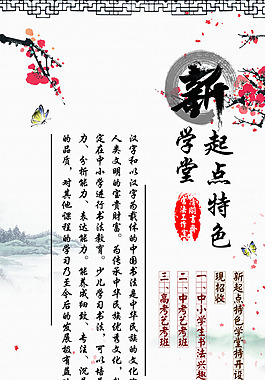 新起点特色
学堂
汉字和以汉字为载体的中国书法是中华民族的文化
人类文明的宝贵财富。为传承中华民族优秀文化，
定在中小学进行书法教育。少儿学习书法，可以培
力、分析能力、表达能力。能养成细致、专注、沉
的品质，对其他课程的学习乃至今后的发展极有益
新起点特色学堂特开设
现招收
一、中小学生书法兴趣
二、中考艺考班
三、高考艺考班